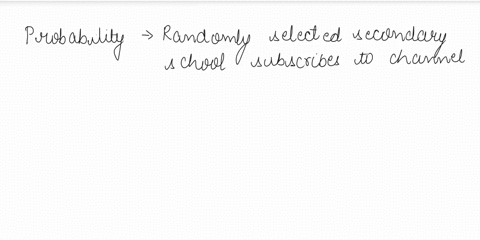 Probability → Randomly selected secondary
school subscribes to channel